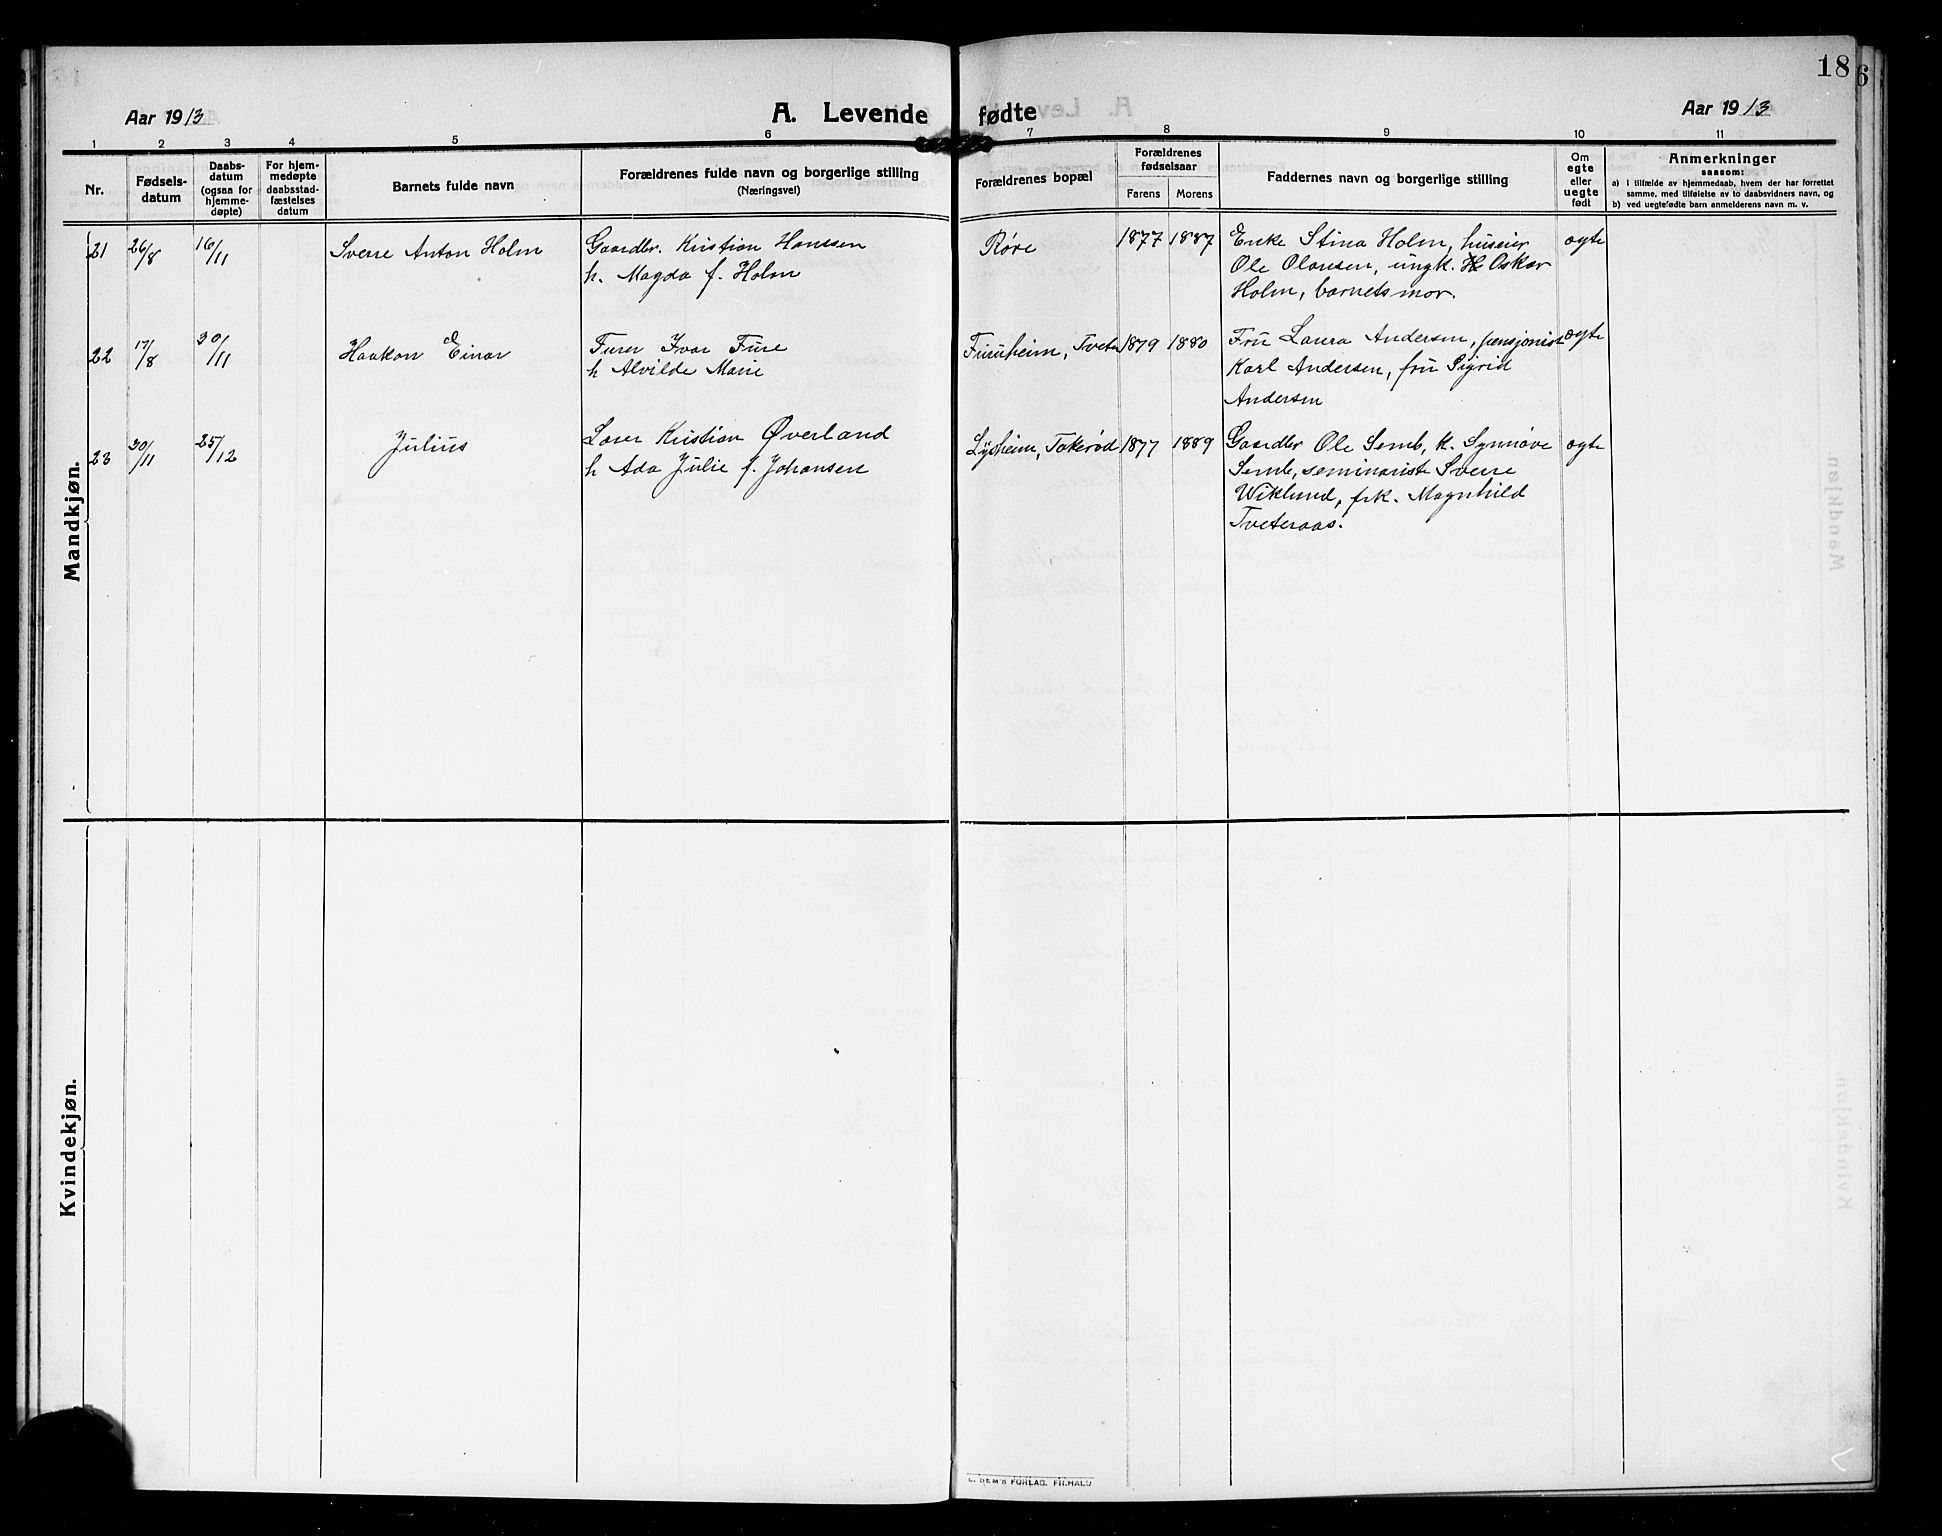 18
6
Aar 1913
A. Levende fødte
Aar 1913
1 2 3 4 5 6 7 8 9 10 11
Nr.
Fødsels-
datum
Daabs-
datum
(ogsaa for
hjemme-
døpte)
For hjem-
medøpte
daabsstad-
fæstelses
datum
Barnets fulde navn
Forældrenes fulde navn og borgerlige stilling
(Næringsvei)
Forældrenes bopæl
Forældrenes
fødselsaar
Farens Morens
Faddernes navn og borgerlige stilling
Om
egte
eller
uegte
født
Anmerkninger
saasom:
a) i tilfælde av hjemmedaab, hvem der har forrettet
samme, med tilføielse av to daabsvidners navn, og
b) ved uegtefødte barn anmelderens navn m. v.
Mandkjøn.
21 26/8 16/11 Sverre Anton Holm Gaardbr. Kristian Hanssen Røre 1877 1887 Enke Stina Holm, huseier egte
h. Magda f. Holm Ole Olausen, ungk. Oskar
Holm, barnets mor.
22 17/8 30/11 Haakon Einar Furer Ivar Fure Furuheim, Tvete 1879 1880 Fru Laura Andersen, pensjonist egte
h Alvilde Marie Karl Andersen, fru Sigrid
Andersen
23 30/11 25/12 Julius Lærer Kristian Øverland Lysheim, Takerød 1877 1889 Gaardbr Ole Semb, k. Synnøve egte
h Ada Julie f. Johansen Semb, seminariste Sverre
Wiklund, frk. Magnhild
Tveteraas.
Kvindekjøn.
E. SEM'S FORLAG. FR.HALD